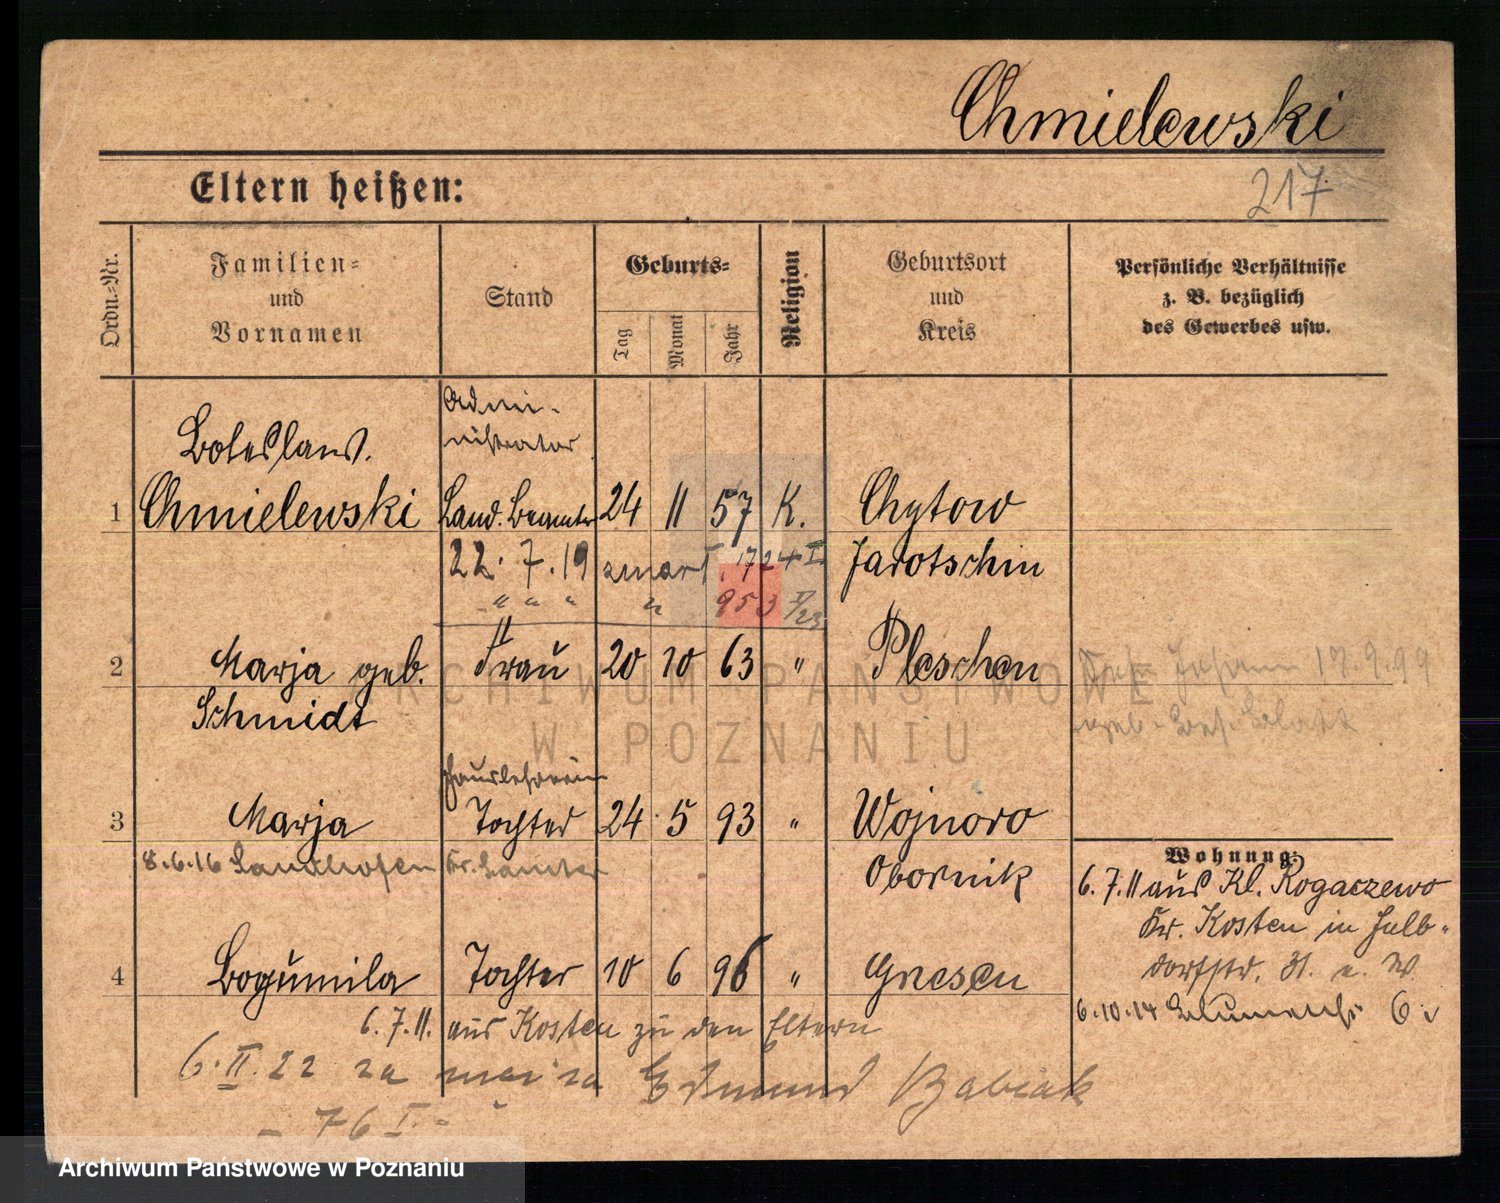 Chmielewski
217
Eltern heißen:
Ordn.-Nr.
Familien-
und
Vornamen
Stand
Geburts-
Tag
Monat
Jahr
Religion
Geburtsort
und
Kreis
Persönliche Verhältnisse
z. B. bezüglich
des Gewerbes usw.
Admi-
nistrator
Boleslaus.
1 Chmielewski Land. Beamter 24 11 57 K. Chytow
22. 7. 19 zmarł I. 1724 I Jarotschin
" " " " 953 I/23
2 Marja geb. Frau 20 10 63 " Pleschen
Johann 17.9.99
Schmidt
Hauslehrerin
3 Marja Tochter 24 5 93 " Wojnowo
8.6.16 Sandhofen Kr. Samter Obornik
Wohnung:
6.7.11 aus Kl. Rogaczewo
Kr. Kosten in Halb-
dorfstr. 31.
4 Bogumila Tochter 10 6 96 " Gnesen
6.10.14 Blumenstr. 6
6.7.11. aus Kosten zu den Eltern
6.II.22 za Edmund Babiak
- 76 I. -
ARCHIWUM PAŃSTWOWE
W POZNANIU
Archiwum Państwowe w Poznaniu